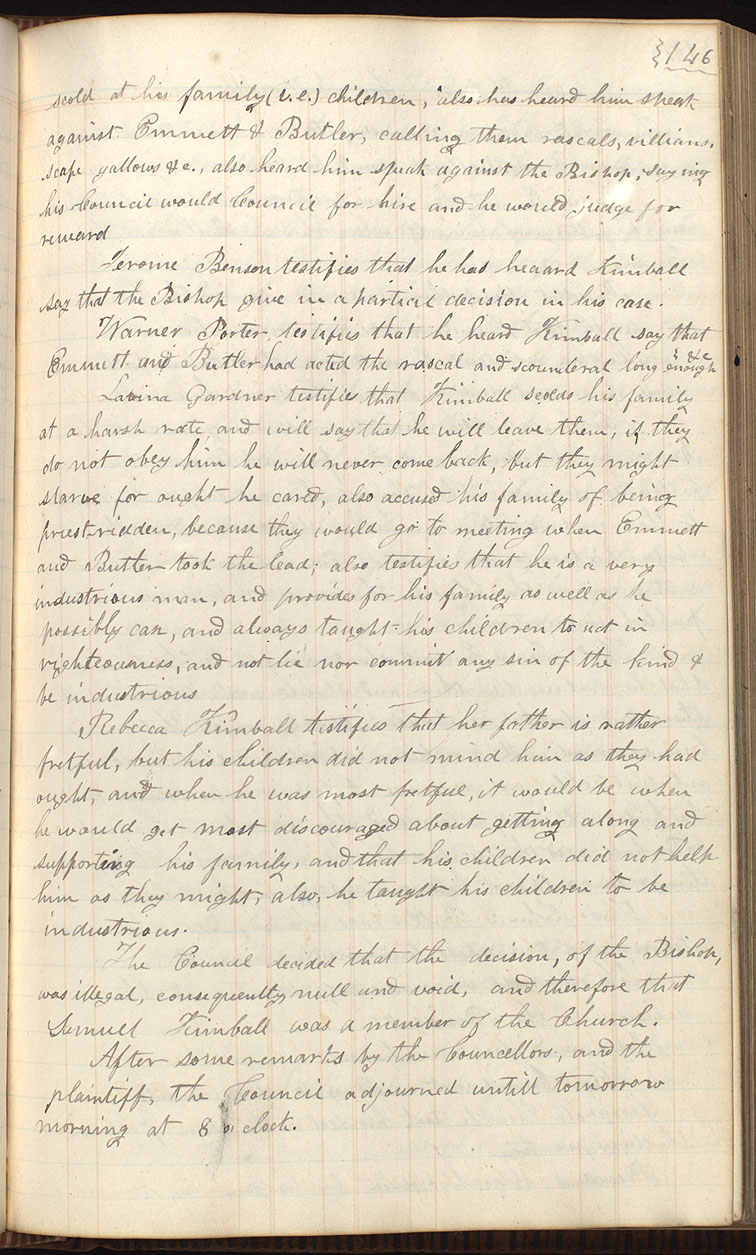 146
scold at his family (i.e.) children, also has heard him speak
against Emmett & Butler, calling them rascals, villians,
scape gallows &c., also heard him speak against the Bishop, saying
his Council would Council for hire and he would judge for
reward
Jerome Benson testifies that he has heaard Kimball
say that the Bishop give in a partial decision in his case.
Warner Porter, testifies that he heard Kimball say that
Emmett and Butler had acted the rascal and scounderal long enough &c
Lavina Gardner testifies that Kimball scolds his family
at a harsh rate, and will say that he will leave them, if they
do not obey him he will never come back, but they might
starve for ought he cared, also accused his family of being
priest-ridden, because they would go to meeting when Emmett
and Butler took the lead; also testifies that he is a very
industrious man, and provides for his family as well as he
possibly can, and always taught his children to act in
righteousness, and not lie nor commit any sin of the kind &
be industrious
Rebecca Kimball testifies that her father is rather
fretful, but his children did not mind him as they had
ought, and when he was most fretful, it would be when
he would get most discouraged about getting along and
supporting his family, and that his children did not help
him as they might, also, he taught his children to be
industrious.
The Council decided that the decision, of the Bishop,
was illegal, consequently null and void, and therefore that
Samuel Kimball was a member of the Church.
After some remarks by the Councellors, and the
plaintiff, the Council adjourned untill tomorrow
morning at 8 o clock.